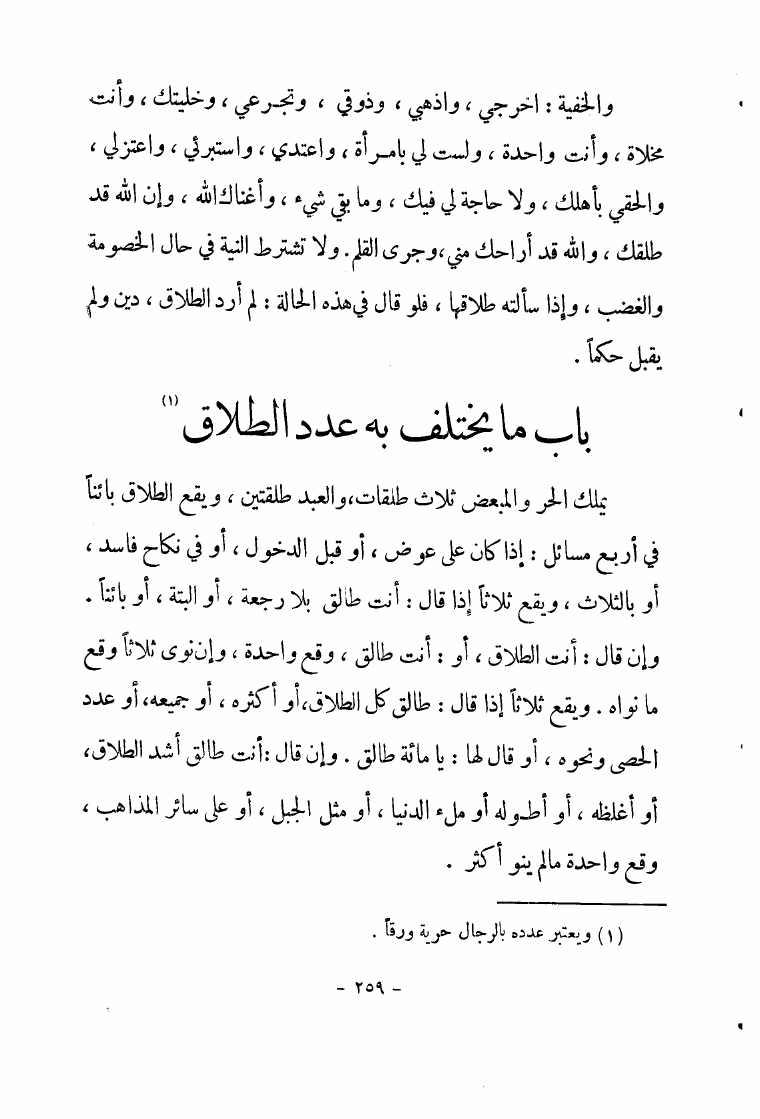 والخفية : اخرجي ، واذهبي ، وذوقي ، وتجرعي ، وخليتك ، وأنت
مخلاة ، وأنت واحدة ، ولست لي بامرأة ، واعتدي ، واستبرئي ، واعتزلي ،
والحقي بأهلك ، ولا حاجة لي فيك ، وما بقي شيء ، وأغناك الله ، وإن الله قد
طلقك ، والله قد أراحك مني، وجرى القلم . ولا تشترط النية في حال الخصومة
والغضب ، وإذا سألته طلاقها ، فلو قال في هذه الحالة : لم أرد الطلاق ، دين ولم
يقبل حكماً .
باب ما يختلف به عدد الطلاق (١)
يملك الحر والمبعض ثلاث طلقات، والعبد طلقتين ، ويقع الطلاق بائناً
في أربع مسائل : إذا كان على عوض ، أو قبل الدخول ، أو في نكاح فاسد ،
أو بالثلاث ، ويقع ثلاثاً إذا قال : أنت طالق بلا رجعة ، أو البتة ، أو بائناً .
وإن قال : أنت الطلاق ، أو : أنت طالق ، وقع واحدة ، وإن نوى ثلاثاً وقع
ما نواه . ويقع ثلاثاً إذا قال : طالق كل الطلاق، أو أكثره ، أو جميعه، أو عدد
الحصى ونحوه ، أو قال لها : يا مائة طالق . وإن قال : أنت طالق أشد الطلاق،
أو أغلظه ، أو أطوله أو ملء الدنيا ، أو مثل الجبل ، أو على سائر المذاهب ،
وقع واحدة مالم ينو أكثر .
(١) ويعتبر عدده بالرجال حرية ورقاً .
- ٢٥٩ -